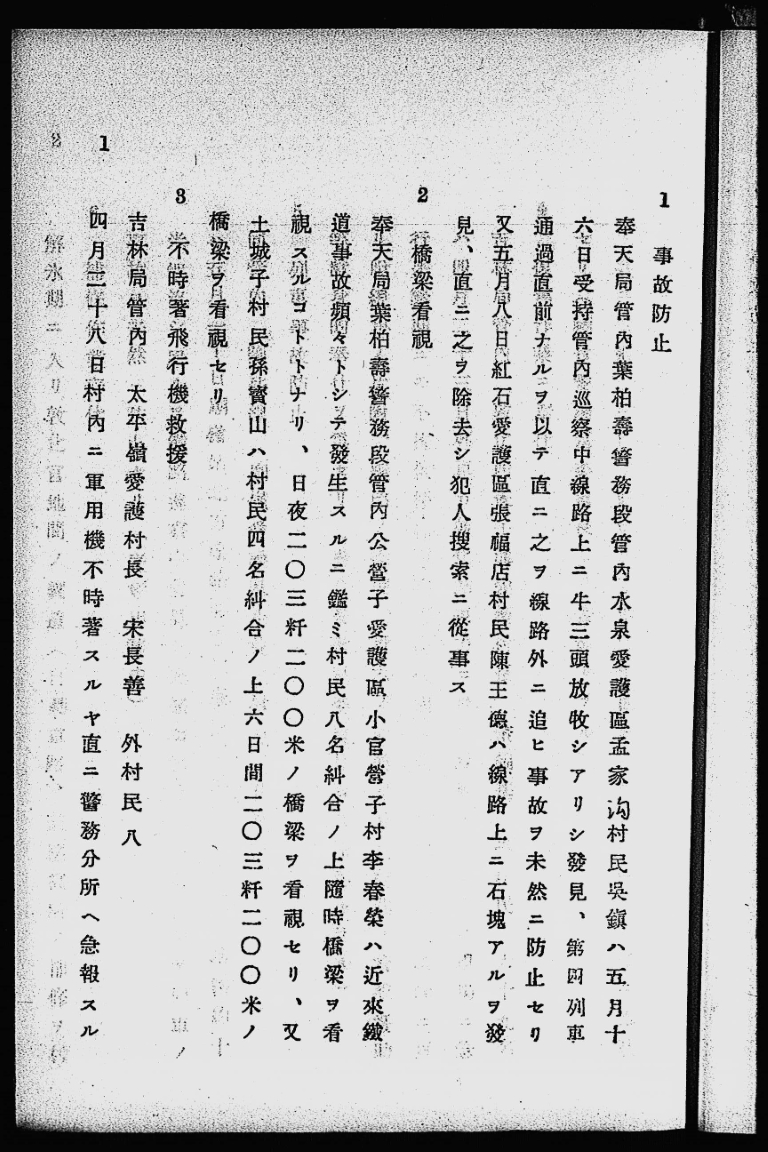 1　事故防止
奉天局管內葉柏壽警務段管內水泉愛護區孟家溝村民吳鎭ハ五月十
六日受持管內巡察中線路上ニ牛三頭放牧シアリシ發見、第四列車
通過直前ナルヲ以テ直ニ之ヲ線路外ニ追ヒ事故ヲ未然ニ防止セリ
又五月八日紅石愛護區張福店村民陳王德ハ線路上ニ石塊アルヲ發
見、直ニ之ヲ除去シ犯人搜索ニ從事ス
2　橋梁看視
奉天局葉柏壽警務段管內公營子愛護區小官營子村李春榮ハ近來鐵
道事故頻々トシテ發生スルニ鑑ミ村民八名糾合ノ上隨時橋梁ヲ看
視スルコトトナリ、日夜二〇三粁二〇〇米ノ橋梁ヲ看視セリ、又
土城子村民孫寶山ハ村民四名糾合ノ上六日間二〇三粁二〇〇米ノ
橋梁ヲ看視セリ
3　不時著飛行機救援
吉林局管內　太平嶺愛護村長　宋長善　外村民八
1　四月二十八日村內ニ軍用機不時著スルヤ直ニ警務分所ヘ急報スル